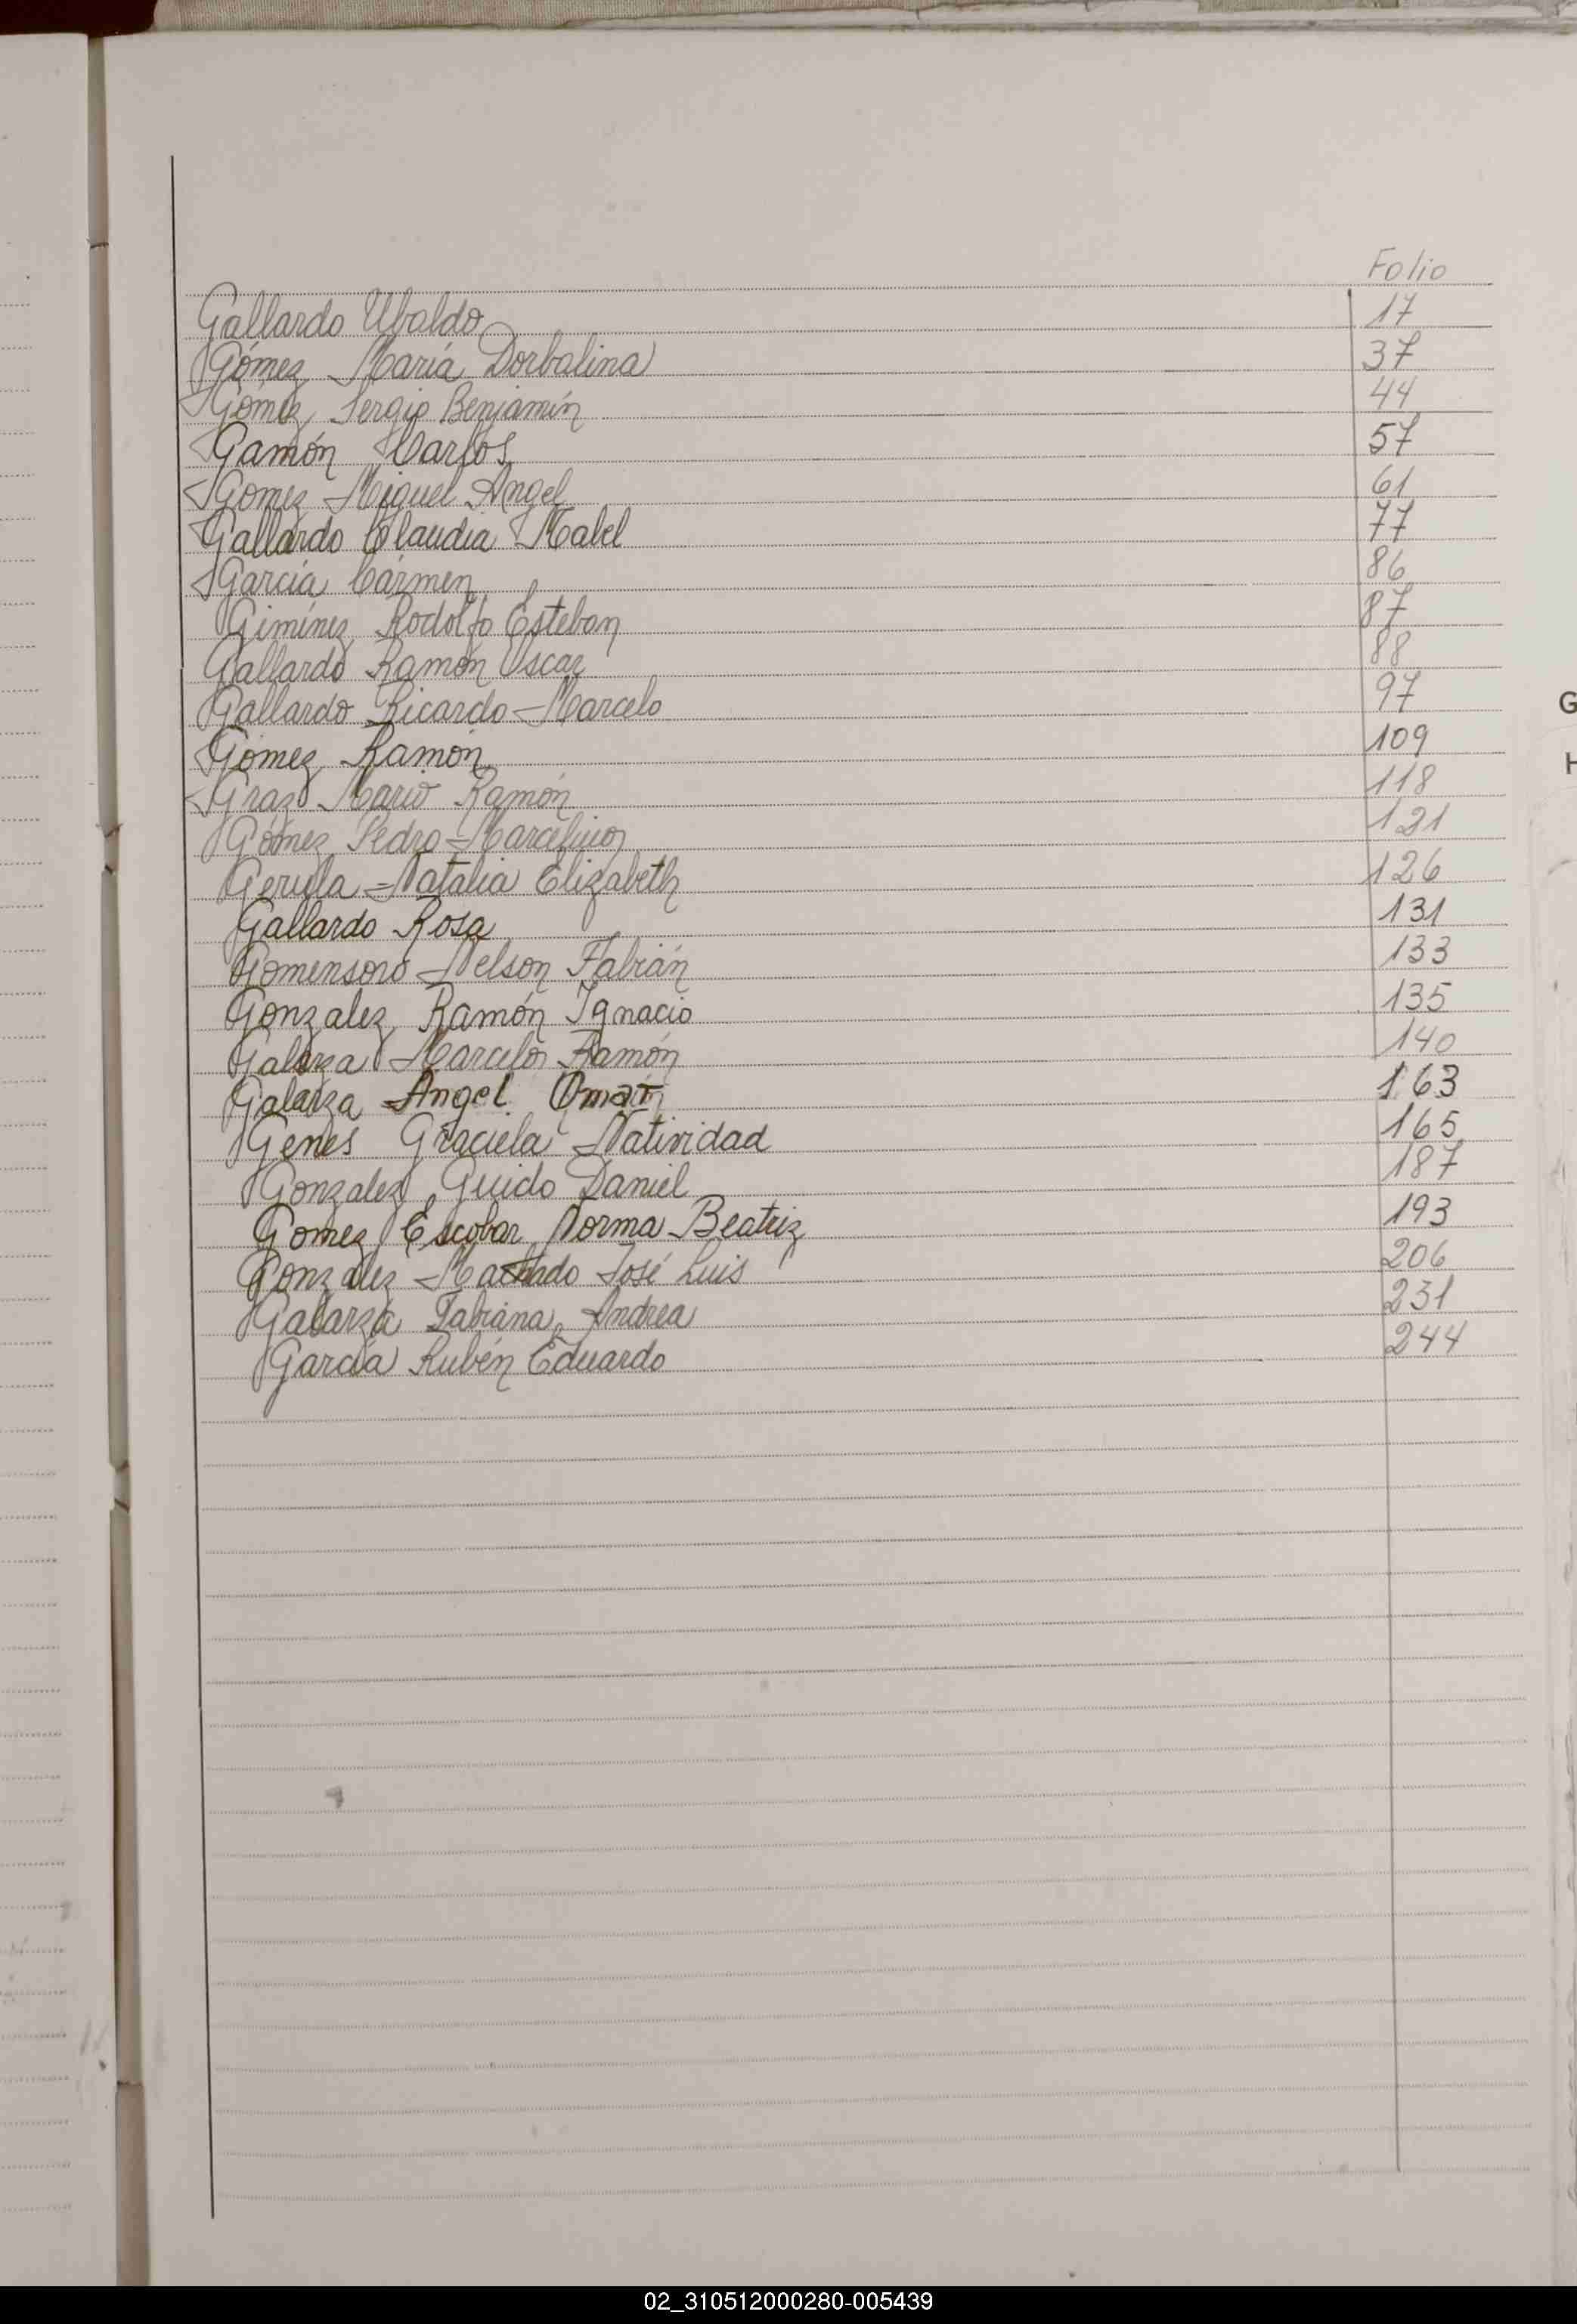 Folio
Gallardo Ubaldo 17
Gómez María Dorbalina 37
Gómez Sergio Benjamín 44
Gamón Carlos 57
Gomez Miguel Angel 61
Gallardo Claudia Mabel 77
García Cármen 86
Giminez Rodolfo Esteban 87
Gallardo Ramón Oscar 88
Gallardo Ricardo Marcelo 97
Gómez Ramón 109
Mario Ramón 118
Gómez Pedro Marcelino 121
Natalia Elizabeth 126
Gallardo Rosa 131
Gomensoro Nelson Fabián 133
Gonzalez Ramón Ignacio 135
Galarza Marcelo Ramón 140
Galarza Angel Omar 163
Genes Graciela Natividad 165
Gonzalez Guido Daniel 187
Gomez Escobar Norma Beatriz 193
Gonzalez Machado José Luis 206
Galarza Fabiana Andrea 231
García Rubén Eduardo 244
G
H
02_310512000280-005439